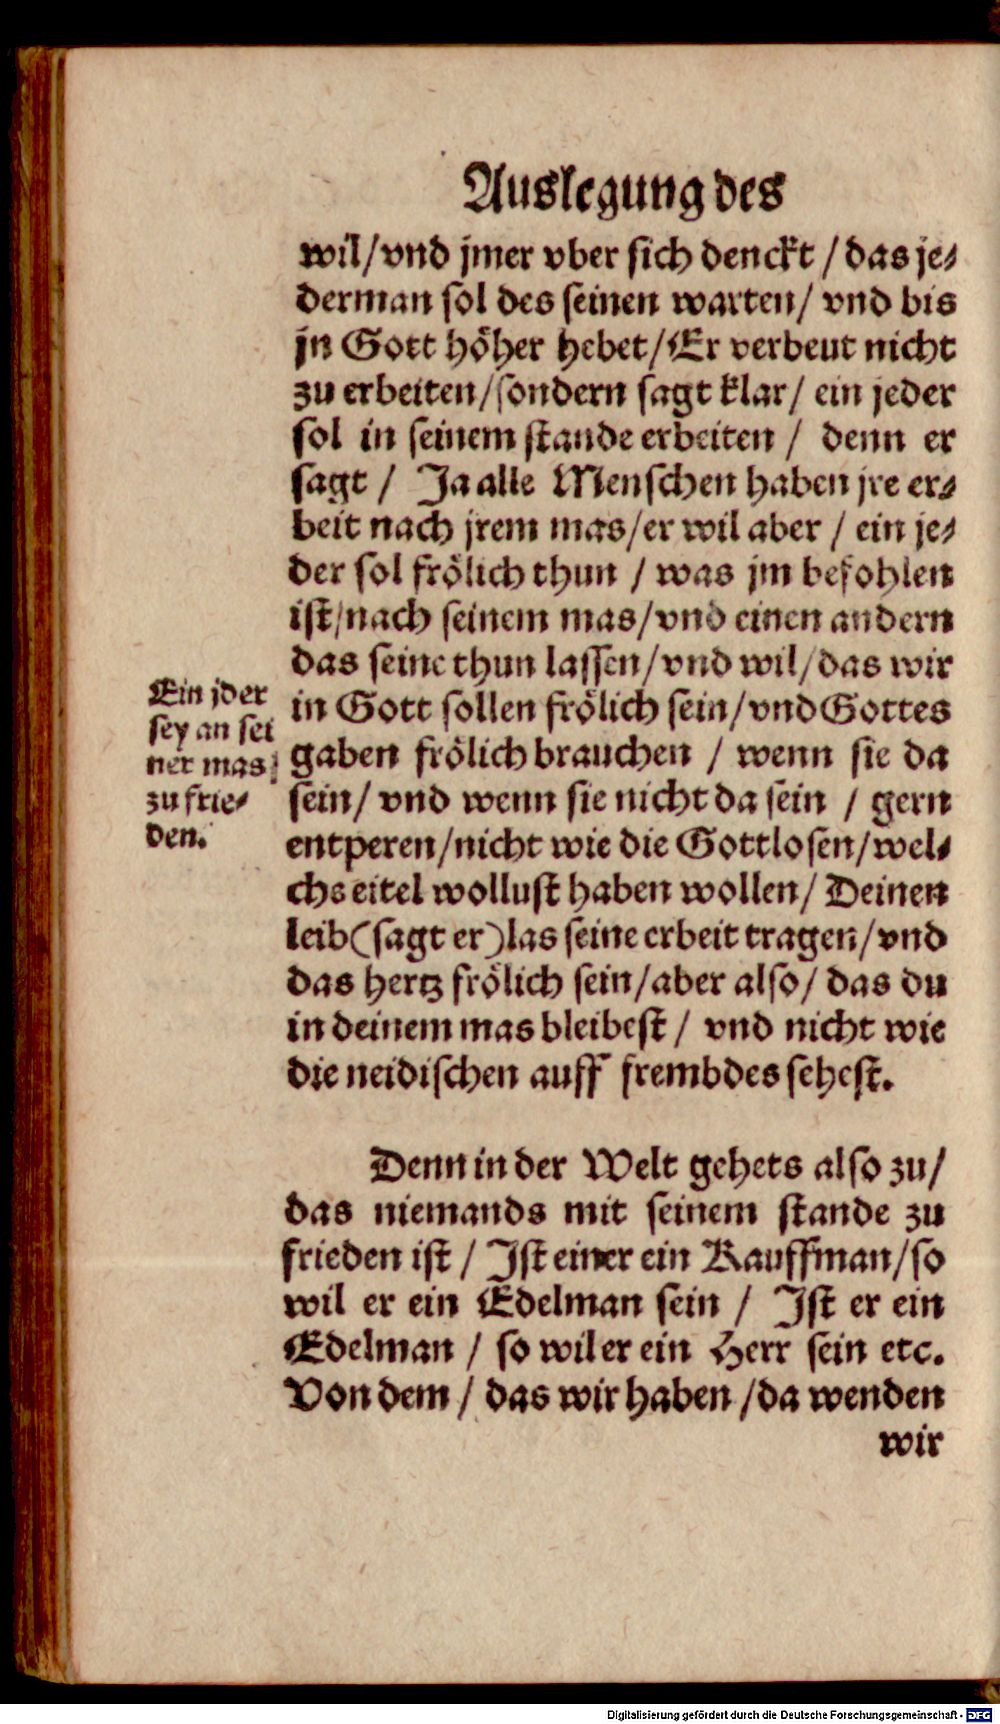 Auslegung des
wil/vnd jmer vber sich denckt/das je-
derman sol des seinen warten/ vnd bis
jn Gott höher hebet/Er verbeut nicht
zu erbeiten/sondern sagt klar/ ein jeder
sol in seinem stande erbeiten / denn er
sagt / Ja alle Menschen haben jre er-
beit nach jrem mas/er wil aber / ein je-
der sol frölich thun / was jm befohlen
ist/nach seinem mas/vnd einen andern
das seine thun lassen/vnd wil/das wir
in Gott sollen frölich sein/vnd Gottes
gaben frölich brauchen / wenn sie da
sein/ vnd wenn sie nicht da sein / gern
entperen/nicht wie die Gottlosen/wel-
chs eitel wollust haben wollen/ Deinen
leib(sagt er)las seine erbeit tragen/vnd
das hertz frölich sein/aber also/ das du
in deinem mas bleibest / vnd nicht wie
die neidischen auff frembdes sehest.
Ein jder
sey an sei
ner mas
zu frie-
den.
Denn in der Welt gehets also zu/
das niemands mit seinem stande zu
frieden ist / Ist einer ein Kauffman/so
wil er ein Edelman sein / Ist er ein
Edelman / so wil er ein Herr sein etc.
Von dem / das wir haben /da wenden
wir
Digitalisierung gefördert durch die Deutsche Forschungsgemeinschaft - DFG